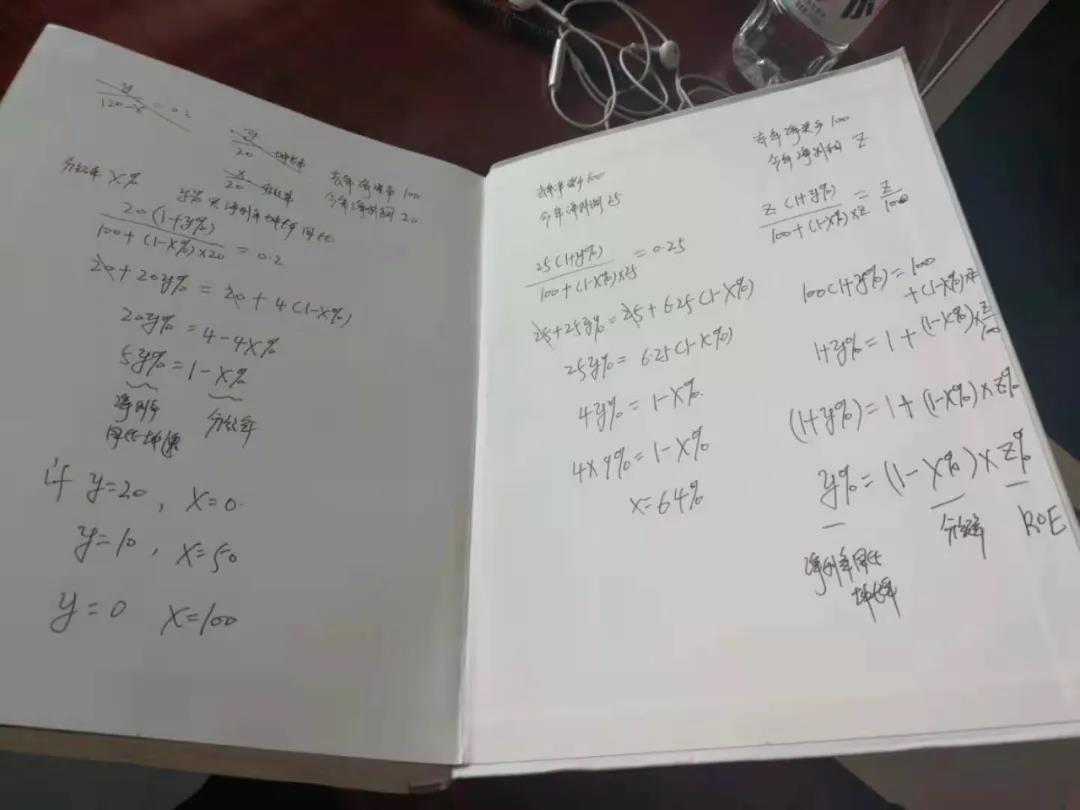 y/(120-x) = 0.2
y/20 增长率
x/20 分红率
分红率 X%
y% 是净利率增长率同比
去年净资产 100
今年净利润 20
20(1+y%)/(100+(1-X%)×20) = 0.2
20+20y% = 20+4(1-X%)
20y% = 4-4X%
5y% = 1-X%
净利率 分红率
同比增速
if y=20, X=0.
y=10, X=50
y=0 X=100
去年净资产100
今年净利润25
25(1+y%)/(100+(1-X%)×25) = 0.25
25+25y% = 25+6.25(1-X%)
25y% = 6.25(1-X%)
4y% = 1-X%.
4×9% = 1-X%
X=64%
去年净资产 100
今年净利润 Z
Z(1+y%)/(100+(1-X%)×Z) = Z/100
100(1+y%) = 100
+(1-X%)×Z
1+y% = 1+(1-X%)×Z/100
(1+y%) = 1+(1-X%)×Z%
y% = (1-X%)×Z%
分红率 ROE
净利率同比
增长率